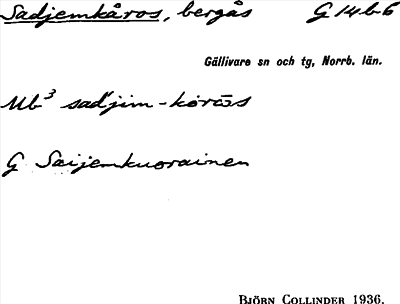 Sadjemkåros, bergås G 14 b 6
Gällivare sn och tg, Norrb. län.
Ub³ sad'jim-kòrōs
G Saijemkuorainen
BJÖRN COLLINDER 1936.